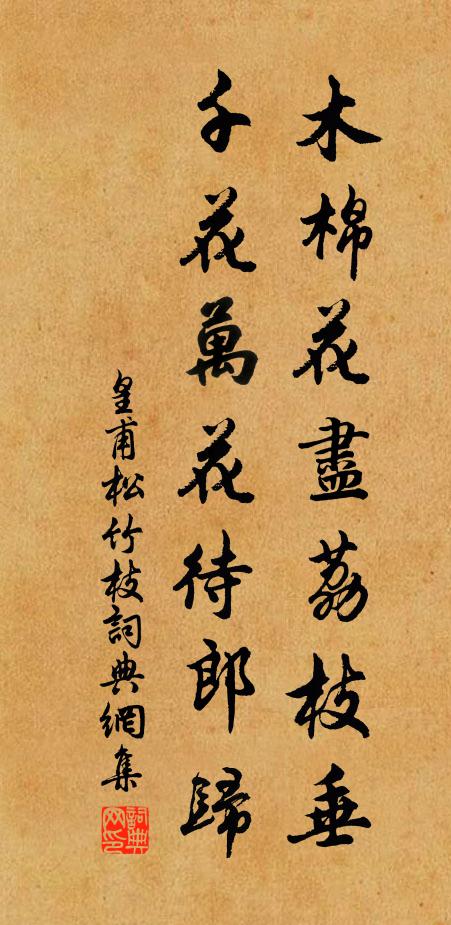 木棉花盡荔枝垂
千花萬花待郎歸
皇甫松竹枝詞典網集
詞典網印